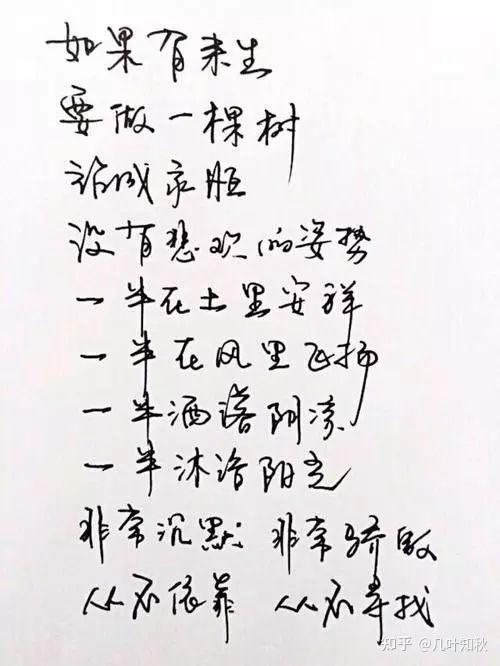 如果有来生
要做一棵树
站成永恒
没有悲欢的姿势
一半在土里安详
一半在风里飞扬
一半洒落阴凉
一半沐浴阳光
非常沉默 非常骄傲
从不依靠 从不寻找
知乎 @几叶知秋